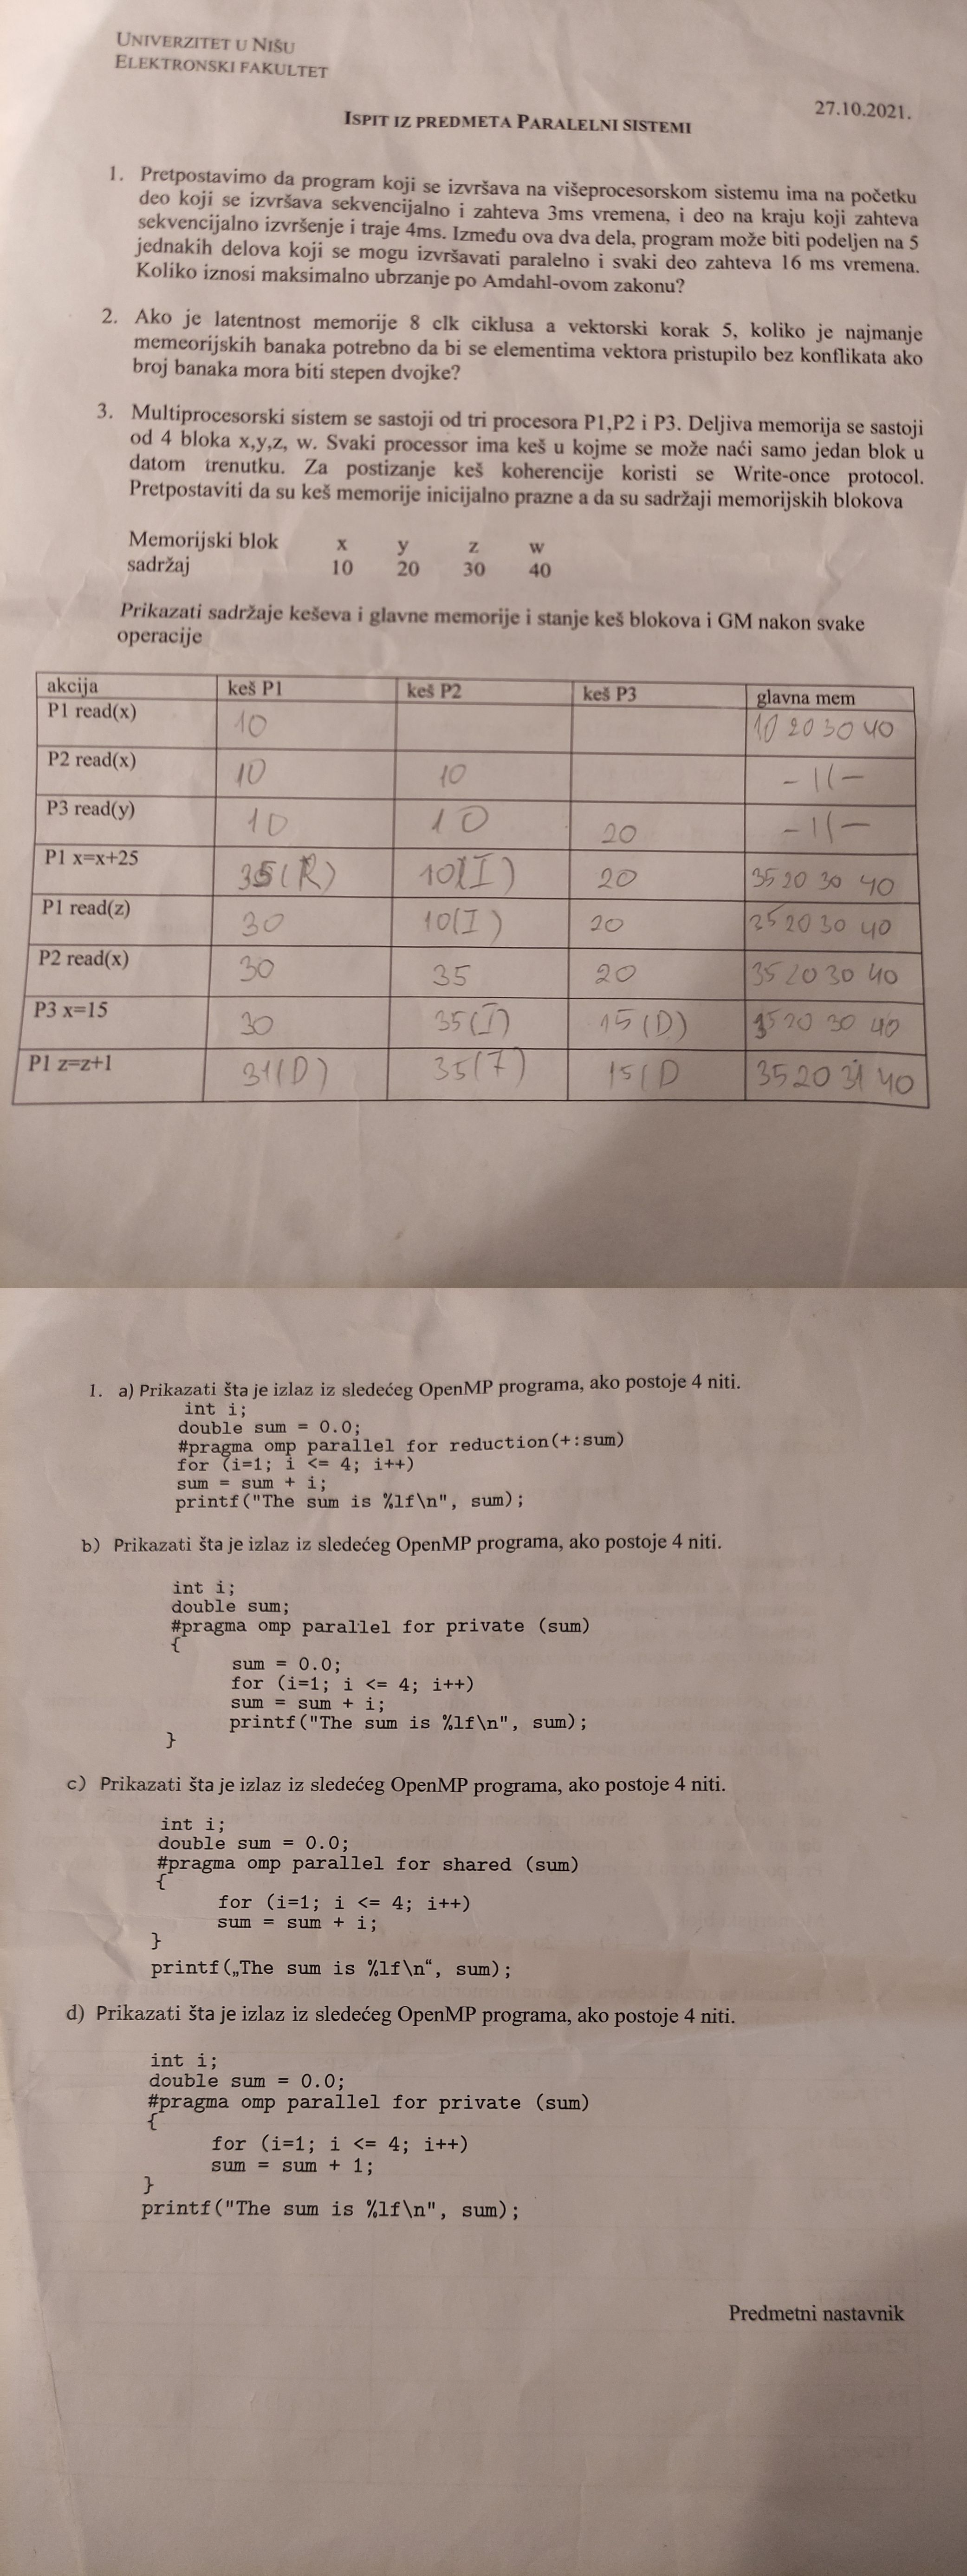 UNIVERZITET U NIŠU
ELEKTRONSKI FAKULTET
27.10.2021.
ISPIT IZ PREDMETA PARALELNI SISTEMI
1. Pretpostavimo da program koji se izvršava na višeprocesorskom sistemu ima na početku
deo koji se izvršava sekvencijalno i zahteva 3ms vremena, i deo na kraju koji zahteva
sekvencijalno izvršenje i traje 4ms. Između ova dva dela, program može biti podeljen na 5
jednakih delova koji se mogu izvršavati paralelno i svaki deo zahteva 16 ms vremena.
Koliko iznosi maksimalno ubrzanje po Amdahl-ovom zakonu?
2. Ako je latentnost memorije 8 clk ciklusa a vektorski korak 5, koliko je najmanje
memeorijskih banaka potrebno da bi se elementima vektora pristupilo bez konflikata ako
broj banaka mora biti stepen dvojke?
3. Multiprocesorski sistem se sastoji od tri procesora P1,P2 i P3. Deljiva memorija se sastoji
od 4 bloka x,y,z, w. Svaki processor ima keš u kojme se može naći samo jedan blok u
datom trenutku. Za postizanje keš koherencije koristi se Write-once protocol.
Pretpostaviti da su keš memorije inicijalno prazne a da su sadržaji memorijskih blokova
Memorijski blok x y z w
sadržaj 10 20 30 40
Prikazati sadržaje keševa i glavne memorije i stanje keš blokova i GM nakon svake
operacije
akcija keš P1 keš P2 keš P3 glavna mem
P1 read(x) 10 10 20 30 40
P2 read(x) 10 10 -11-
P3 read(y) 10 10 20 -11-
P1 x=x+25 35(R) 10(I) 20 35 20 30 40
P1 read(z) 30 10(I) 20 35 20 30 40
P2 read(x) 30 35 20 35 20 30 40
P3 x=15 30 35(I) 15(D) 3520 30 40
P1 z=z+1 31(D) 35(7) 15(D 35 20 31 40
1. a) Prikazati šta je izlaz iz sledećeg OpenMP programa, ako postoje 4 niti.
int i;
double sum = 0.0;
#pragma omp parallel for reduction(+:sum)
for (i=1; i <= 4; i++)
sum = sum + i;
printf("The sum is %lf\n", sum);
b) Prikazati šta je izlaz iz sledećeg OpenMP programa, ako postoje 4 niti.
int i;
double sum;
#pragma omp parallel for private (sum)
{
sum = 0.0;
for (i=1; i <= 4; i++)
sum = sum + i;
printf("The sum is %lf\n", sum);
}
c) Prikazati šta je izlaz iz sledećeg OpenMP programa, ako postoje 4 niti.
int i;
double sum = 0.0;
#pragma omp parallel for shared (sum)
{
for (i=1; i <= 4; i++)
sum = sum + i;
}
printf(„The sum is %lf\n“, sum);
d) Prikazati šta je izlaz iz sledećeg OpenMP programa, ako postoje 4 niti.
int i;
double sum = 0.0;
#pragma omp parallel for private (sum)
{
for (i=1; i <= 4; i++)
sum = sum + 1;
}
printf("The sum is %lf\n", sum);
Predmetni nastavnik